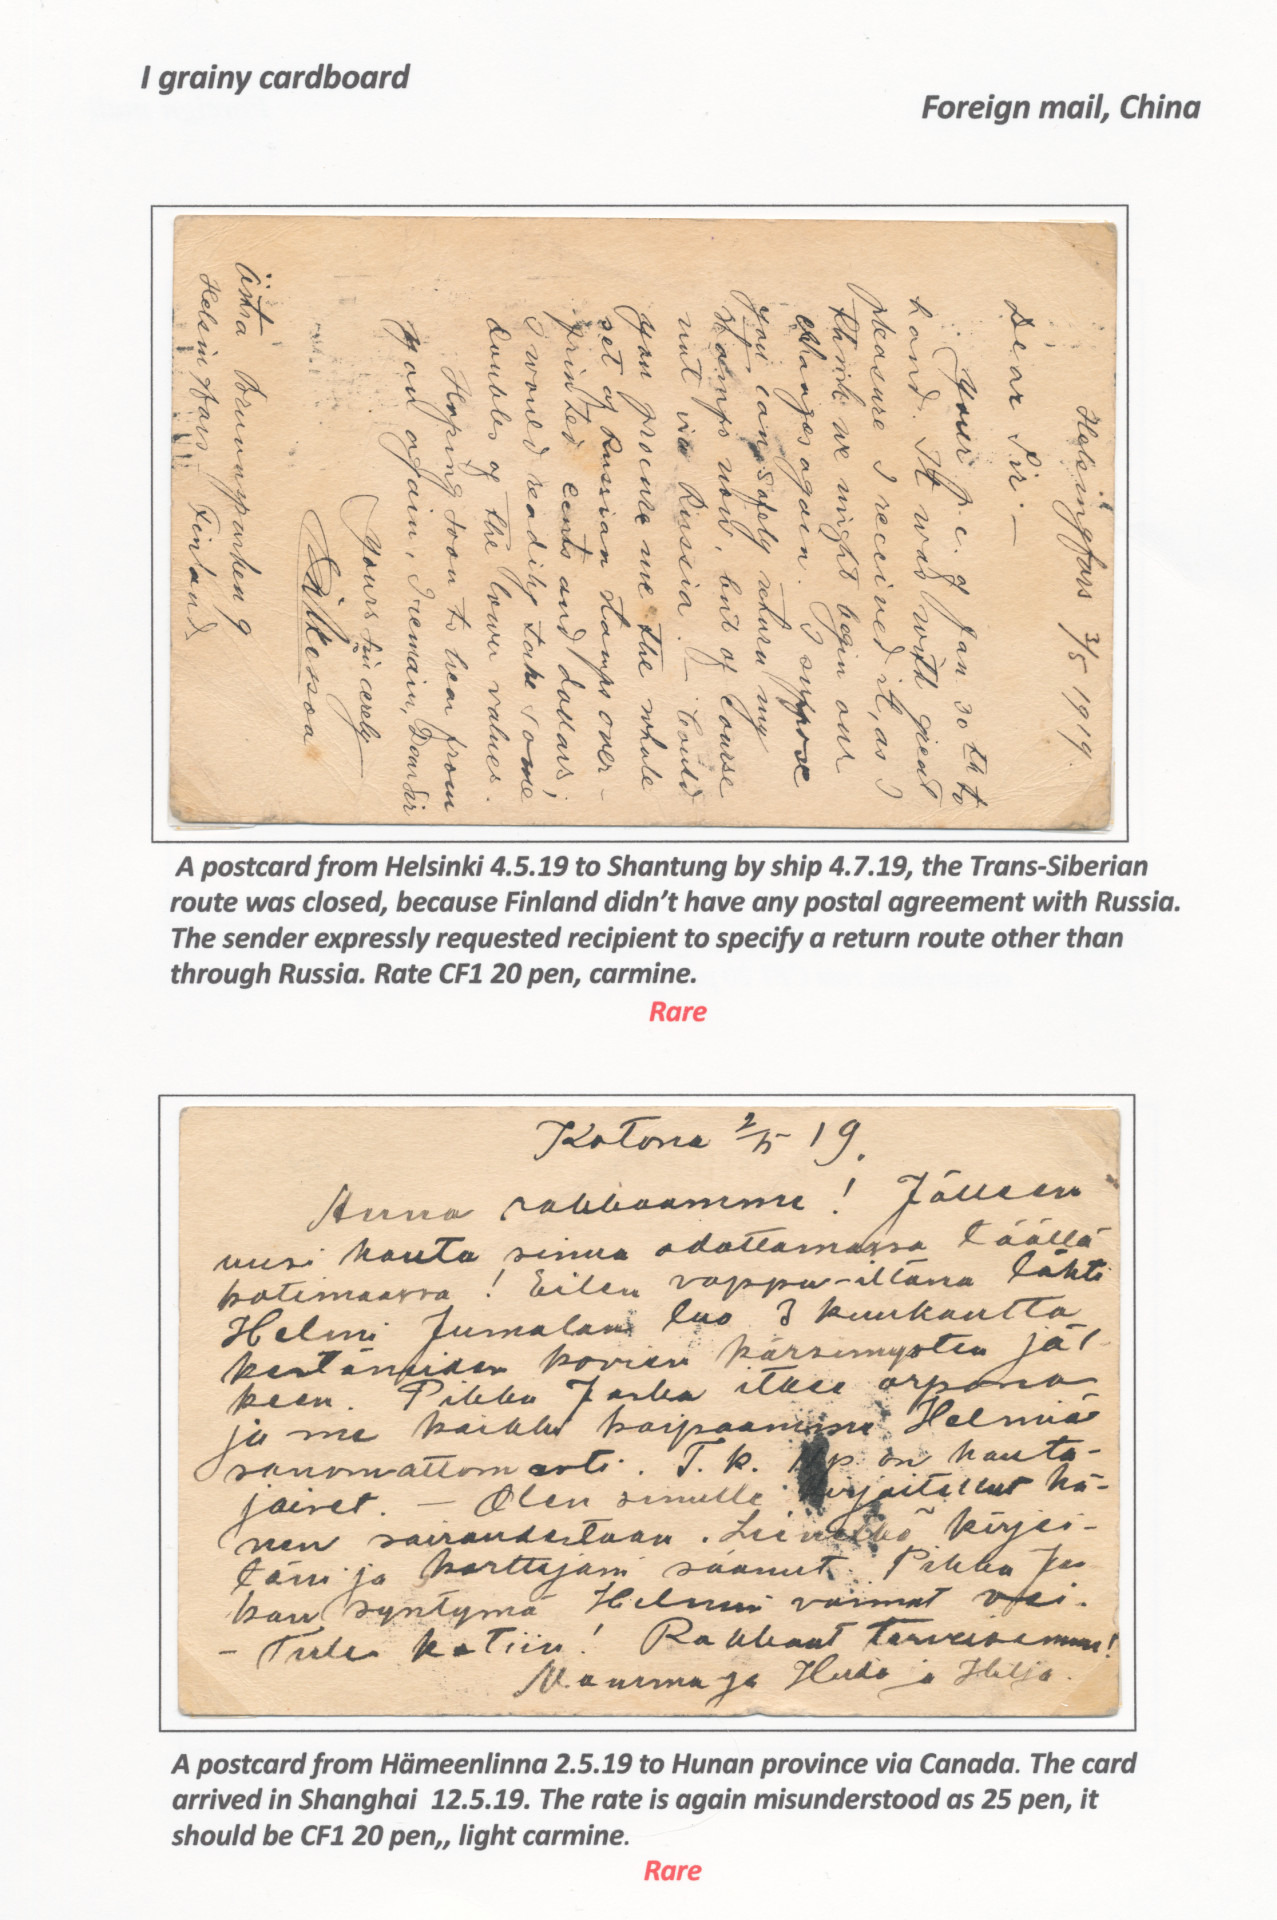 I grainy cardboard
Foreign mail, China
Helsingfors 3/5 1919.
Dear Sir. —
Your p.c. of Jan 30th to
hand. It was with great
pleasure I received it, as I
think we might begin our
changes again. I suppose
you can safely return my
stamps now, but of course
not via Russia. — Could
you procure me the whole
set of Russian stamps over-
printed cents and dollars;
I would readily take some
doubles of the lower values.
Hoping soon to hear from
you again, I remain, Dear Sir
Yours sincerely
Östra Brunnsparken 9
Helsingfors Finland
A postcard from Helsinki 4.5.19 to Shantung by ship 4.7.19, the Trans-Siberian
route was closed, because Finland didn't have any postal agreement with Russia.
The sender expressly requested recipient to specify a return route other than
through Russia. Rate CF1 20 pen, carmine.
Rare
Kotona 2/5 19.
Anna rakkaamme! Jälleen
uusi hauta sinua odottamassa täällä
kotimaassa! Eilen vappu-iltana lähti
Helmi Jumalan luo 3 kuukautta
kestäneiden kovien kärsimysten jäl-
keen. Pikku Jaska itkee orpona
ja me kaikki kaipaamme Helmiä
sanomattomasti. T. k. p on hauta-
jaiset. — Olen sinulle kirjoitellut hä-
nen sairaudestaan. Lienetkö kirjei-
täni ja korttejani saanut. Pikku Jas
kan syntymä Helmin voimat vei.
— Tule kotiin! Rakkaat terveisemme!
Mamma ja Hilja.
A postcard from Hämeenlinna 2.5.19 to Hunan province via Canada. The card
arrived in Shanghai 12.5.19. The rate is again misunderstood as 25 pen, it
should be CF1 20 pen,, light carmine.
Rare